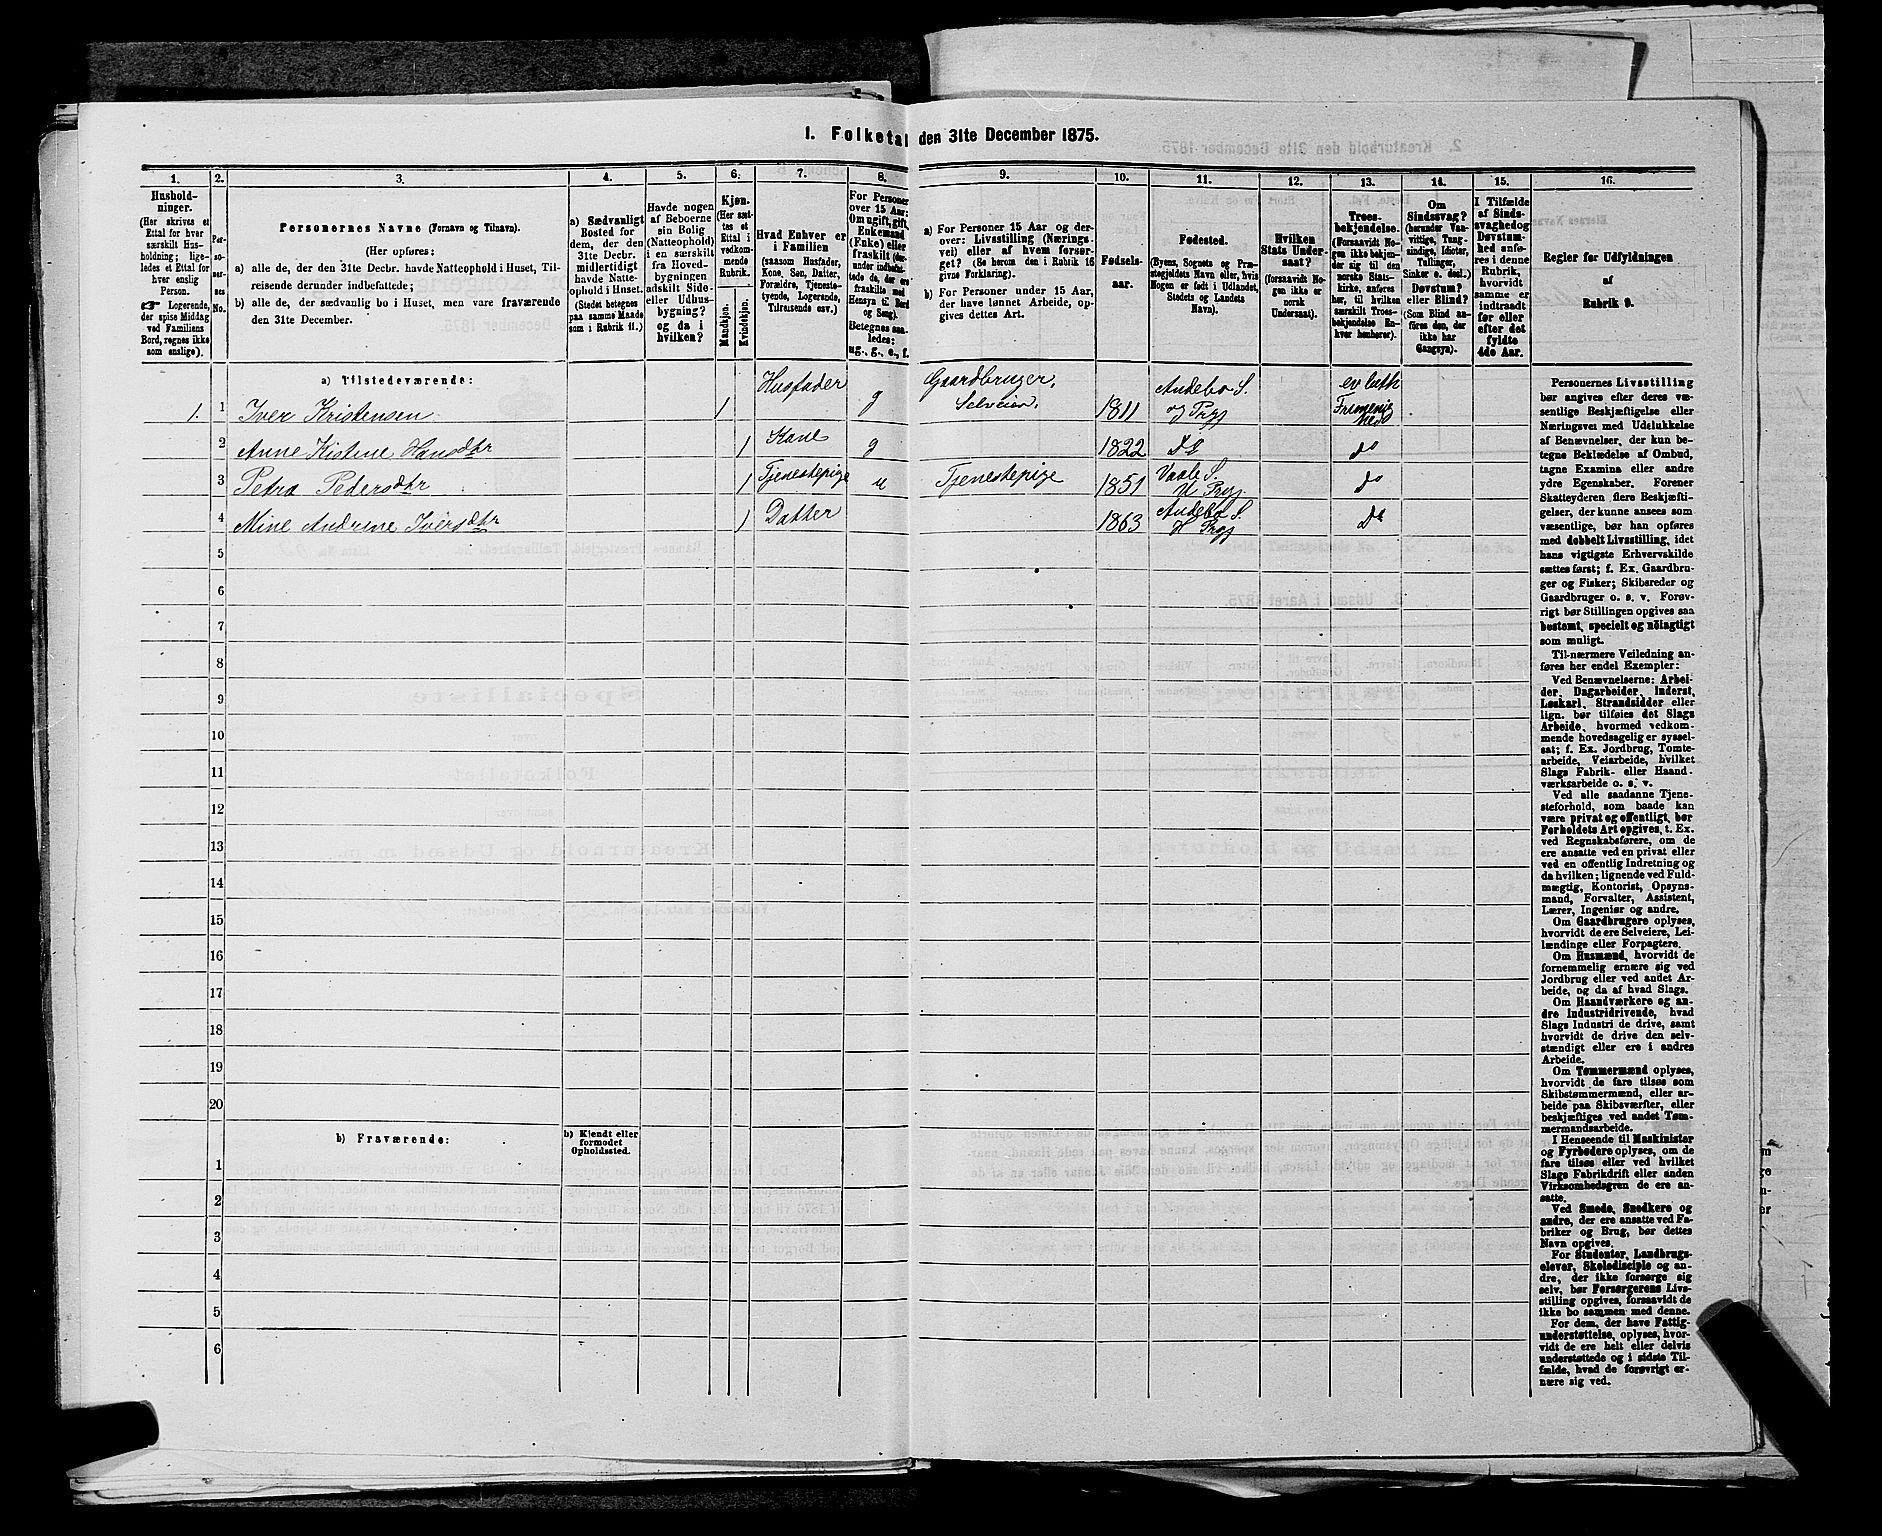 I. Folketal den 31te December 1875.
1.
2.
3.
4.
5.
6.
7.
8.
9.
10.
11.
12.
13.
14.
15.
16.
Hushold-
ninger.
(Her skrives et
Ettal for hver
særskilt Hus-
holdning; lige-
ledes et Ettal for
hver enslig
Person.
☞ Logerende,
der spise Middag
ved Familiens
Bord, regnes ikke
som enslige).
Per-
so-
ner-
nes
No.
Personernes Navne (Fornavn og Tilnavn).
(Her opføres:
a) alle de, der den 31te Decbr. havde Natteophold i Huset, Til-
reisende derunder indbefattede;
b) alle de, der sædvanlig bo i Huset, men vare fraværende
den 31te December.
a) Sædvanligt
Bosted for
dem, der den
31te Decbr.
midlertidigt
havde Natte-
ophold i Huset.
(Stedet betegnes
paa samme Maade
som i Rubrik 11.)
Havde nogen
af Beboerne
sin Bolig
(Natteophold)
i en særskilt
fra Hoved-
bygningen
adskilt Side-
eller Udhus-
bygning?
og da i
hvilken?
Kjøn.
(Her sæt-
tes et
Ettal i
vedkom-
mende
Rubrik.
Mandkjøn.
Kvindekjøn.
Hvad Enhver er
i Familien
(saasom Husfader,
Kone, Søn, Datter,
Forældre, Tjeneste-
tyende, Logerende,
Tilreisende osv.)
For Personer
over 15 Aar:
Om ugift, gift,
Enkemand
(Enke) eller
fraskilt (her-
under indbefat-
tede de, der ere
fraskilte med
Hensyn til Bord
og Seng).
Betegnes saa-
ledes:
ug., g., e., f.
a) For Personer 15 Aar og der-
over: Livsstilling (Nærings-
vei) eller af hvem forsør-
get? (Se herom den i Rubrik 16
givne Forklaring).
b) For Personer under 15 Aar,
der have lønnet Arbeide, op-
gives dettes Art.
Fødsels-
aar.
Fødested.
(Byens, Sognets og Præ-
stegjeldets Navn eller, hvis
Nogen er født i Udlandet,
Stedets og Landets
Navn).
Hvilken
Stats Under-
saat?
(forsaavidt No-
gen ikke er
norsk
Undersaat).
Troes-
bekjendelse.
(Forsaavidt No-
gen ikke bekjen-
der sig til den
norske Stats-
kirke, anføres
her, til hvilken
særskilt Troes-
bekjendelse En-
hver henhører).
Om
Sindssvag?
(herunder Van-
vittige, Tung-
sindige, Idioter,
Tullinger,
Sinker o. desl.)
Døvstum?
eller Blind?
(Som Blind an-
føres den, der
ikke har
Gangsyn).
I Tilfælde
af Sinds-
svaghed og
Døvstum-
hed anfø-
res i denne
Rubrik,
hvorvidt
samme er
indtraadt
før eller
efter det
fyldte
4de Aar.
Regler for Udfyldningen
af
Rubrik 9.
a) Tilstedeværende:
1. 1 Iver Kristensen 1 Husfader g Gaardbruger, Selveier. 1811 Andebo S. og Prgj ev luth
2 Anne Kistine Hansdtr 1 Kone g 1822 do do
3 Petra Pedersdtr 1 Tjenestepige u Tjenestepige 1851 Vaale S. Prgj do
4 Mine Andrine Iversdtr 1 Datter 1863 Andebo S. Prgj do
5
6
7
8
9
10
11
12
13
14
15
16
17
18
19
20
b) Fraværende:
b) Kjendt eller
formodet
Opholdssted.
1
2
3
4
5
6
Personernes Livsstilling
bør angives efter deres væ-
sentlige Beskjæftigelse eller
Næringsvei med Udelukkelse
af Benævnelser, der kun be-
tegne Beklædelse af Ombud,
tagne Examina eller andre
ydre Egenskaber. Forener
Skatteyderen flere Beskjæfti-
gelser, der kunne ansees som
væsentlige, bør han opføres
med dobbelt Livsstilling, idet
hans vigtigste Erhvervskilde
sættes først; f. Ex. Gaardbru-
ger og Fisker; Skibsreder og
Gaardbruger o. s. v. Forøv-
rigt bør Stillingen opgives saa
bestemt, specielt og nöiagtigt
som muligt.
Til nærmere Veiledning an-
føres her endel Exempler:
Ved Benævnelserne: Arbei-
der, Dagarbeider, Inderst,
Løskarl, Strandsidder eller
lign. bør tilføies det Slags
Arbeide, hvormed vedkom-
mende hovedsagelig er syssel-
sat; f. Ex. Jordbrug, Tomte-
arbeide, Veiarbeide, hvilket
Slags Fabrik- eller Haand-
værksarbeide o. s. v.
Ved alle saadanne Tjene-
steforhold, som baade kan
være privat og offentligt, bør
Forholdets Art opgives, t. Ex.
ved Regnskabsførere, om de
ere ansatte ved en privat eller
ved en offentlig Indretning og
da hvilken; lignende ved Fuld-
mægtig, Kontorist, Opsyns-
mand, Forvalter, Assistent,
Lærer, Ingeniør og andre.
Om Gaardbrugere oplyses,
hvorvidt de ere Selveiere, Lei-
lændinge eller Forpagtere.
Om Husmænd, hvorvidt de
fornemmelig ernære sig ved
Jordbrug eller ved andet Ar-
beide, og da af hvad Slags.
Om Haandværkere og an-
dre Industridrivende, hvad
Slags Industri de drive, samt
hvorvidt de drive den selv-
stændigt eller ere i andres
Arbeide.
Om Tømmermænd oplyses,
hvorvidt de fare tilsøs som
Skibstømmermænd, eller ar-
beide paa Skibsværfter, eller
beskjæftiges ved andet Tøm-
mermandsarbeide.
I Henseende til Maskinister
og Fyrbødere oplyses, om de
fare tilsøs eller ved hvilket
Slags Fabrikdrift eller anden
Virksomhedsgren de ere an-
satte.
Ved Smede, Snedkere og
andre, der ere ansatte ved Fa-
briker og Brug, bør dettes
Navn opgives.
For Studenter, Landbrugs-
elever, Skoledisciple og an-
dre, der ikke forsørge sig
selv, bør Forsørgerens Livs-
stilling opgives, forsaavidt de
ikke bo sammen med denne.
For dem, der have Fattig-
understøttelse, oplyses, hvor-
vidt de ere helt eller delvis
understøttede og i sidste Til-
fælde, hvad de forøvrigt er-
nære sig ved.